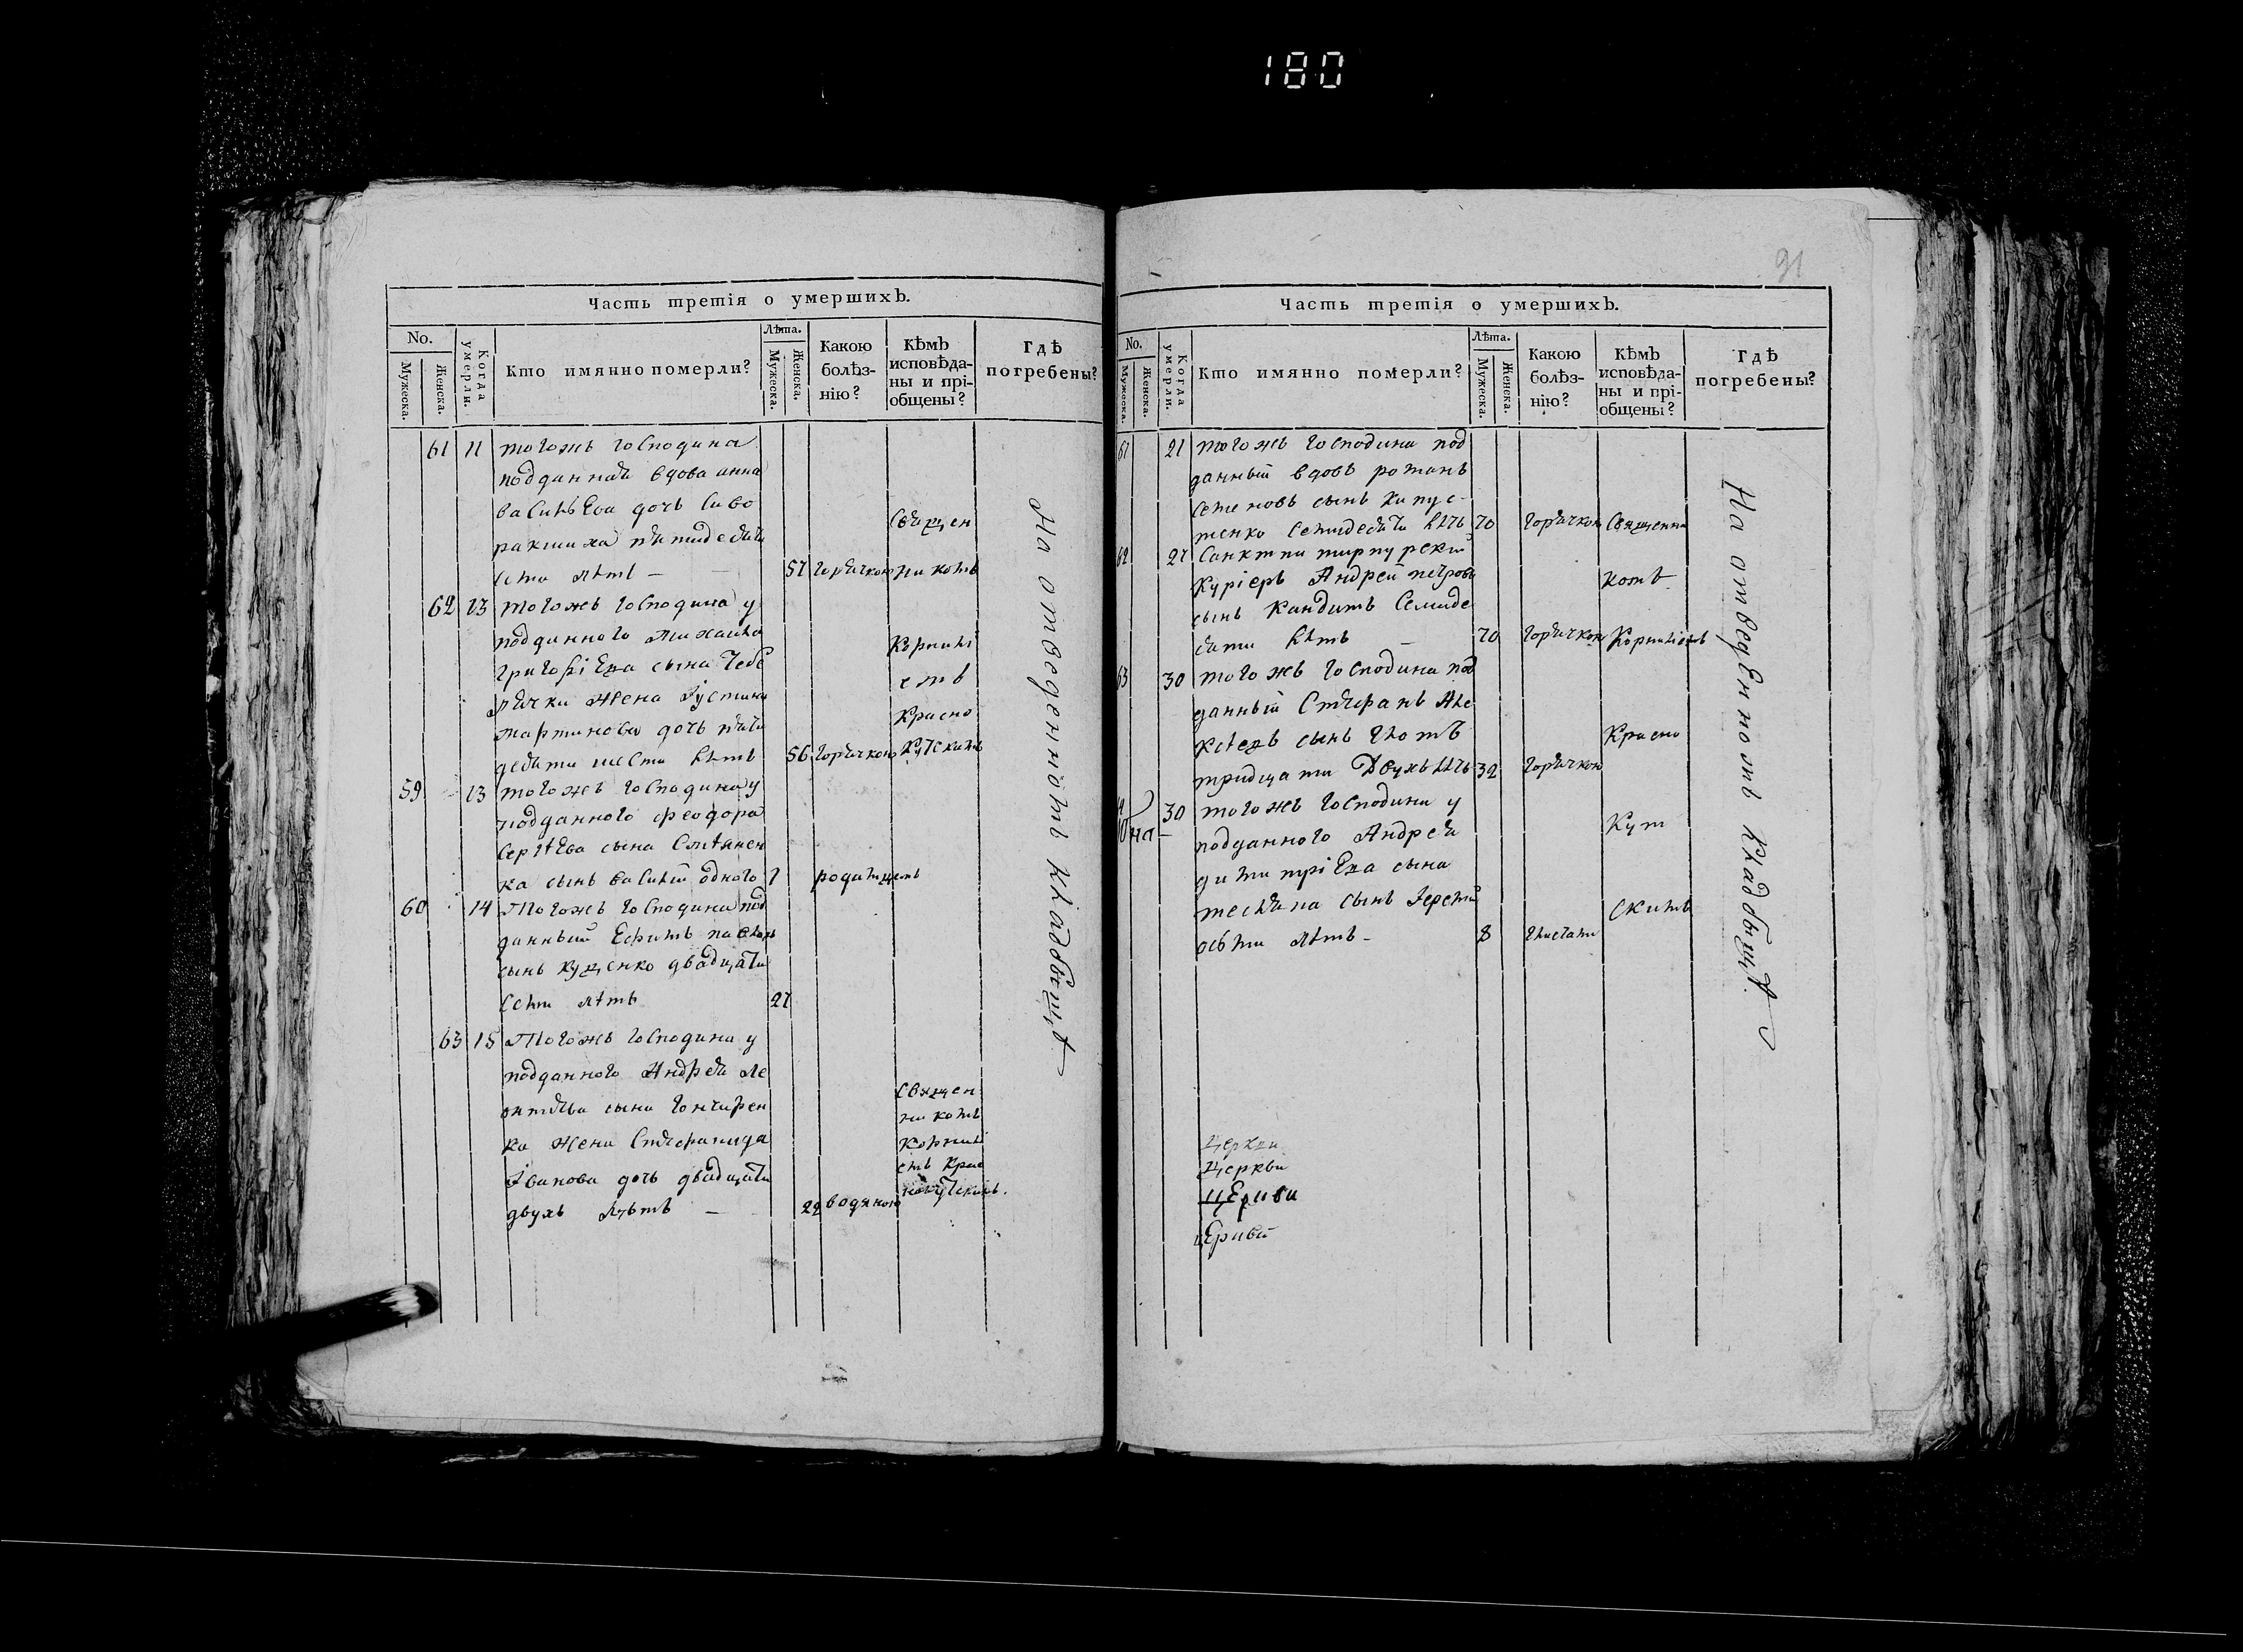 180
Часть третія о умершихъ.
No.
Мужеска.
Женска.
Когда умерли.
Кто имянно померли?
Лѣта.
Мужеска.
Женска.
Какою болѣз-
нію?
Кѣмъ
исповѣда-
ны и прі-
общены?
Гдѣ
погребены?
61 11 тогожъ господина
подданная вдова анна
васильева дочь
пятидесяти
семи лѣтъ — 57 горячкою
Священ
никомъ
62 13 тогожъ господина у
подданного михаила
григоріева сына
жена Іустина
мартинова дочь пяти
десяти шести лѣтъ 56 горячкою
Корнилі
емъ
Красно
кутскимъ
59 13 тогожъ господина у
подданного феодора
сергѣева сына
ка сынъ василій одного 1 родимцемъ
60 14 Тогожъ господина под
данный Ефимъ павловъ
сынъ куценко двадцати
семи лѣтъ 27
63 15 Тогожъ господина у
подданного Андрея ле
онтіева сына гончарен
ка жена Стефанида
Іванова дочь двадцати
двухъ лѣтъ — 22 водяною
Священ
никомъ
Корнилі
емъ Крас
нокутскимъ.
На отведенномъ кладбищѣ
91
Часть третія о умершихъ.
No.
Мужеска.
Женска.
Когда умерли.
Кто имянно померли?
Лѣта.
Мужеска.
Женска.
Какою
болѣз-
нію?
Кѣмъ
исповѣда-
ны и прі-
общены?
Гдѣ
погребены?
61 21 тогожъ господина под
данный вдовъ романъ
семеновъ сынъ
семидесяти лѣтъ 70 горячкою Священни
62 27
Куріеръ Андрей петровъ
сынъ Кандитъ Семиде
сяти лѣтъ — 70 горячкою
комъ
Корниліемъ
63 30 тогожъ господина под
данный Стефанъ Але
ксѣевъ сынъ
тридцати Двухъ лѣтъ 32 горячкою
Красно
30 тогожъ господина у
подданного Андрея
димитріева сына
сынъ Іеремій
осьми лѣтъ - 8
Кут
скимъ
На отведенномъ кладбищѣ
Церкви
Церкви
цЕркви
цЕркви